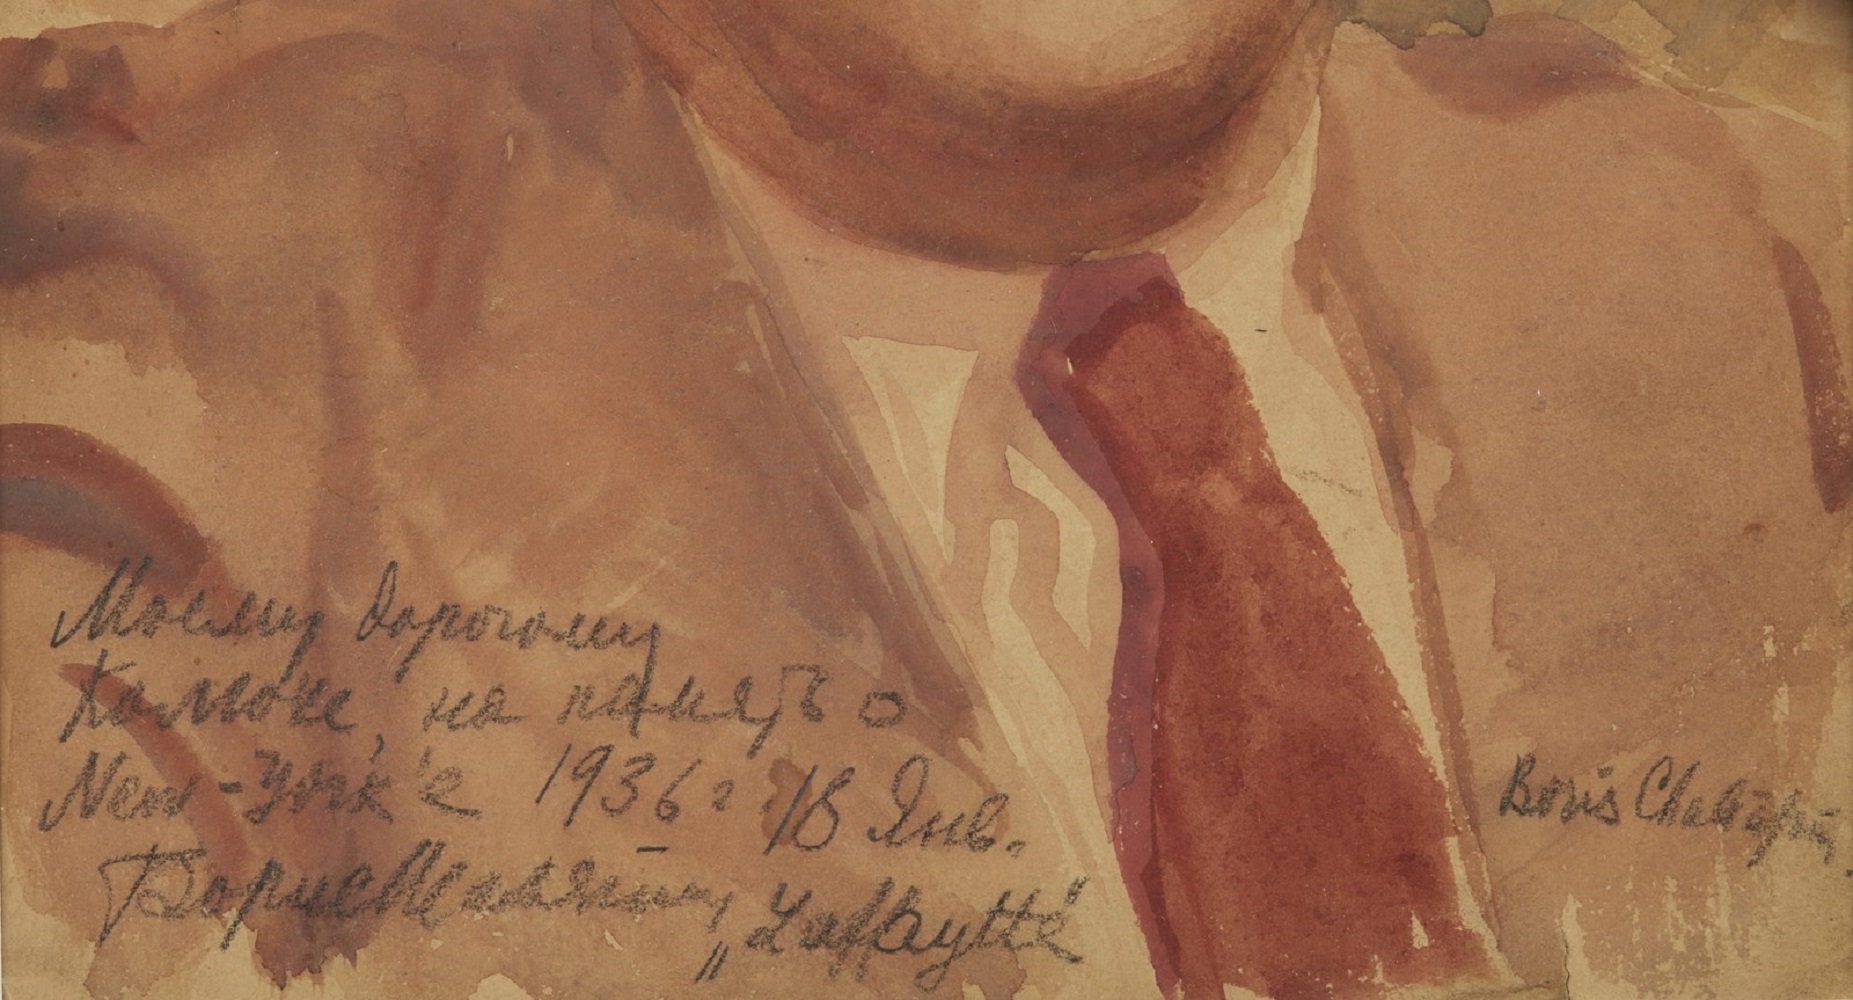 Моему дорогому
Колюше, на память о
New-York'е 1936 г. 18 Янв.
Борис Шаляпин,
„Laffaytte"
Boris Chaliapin